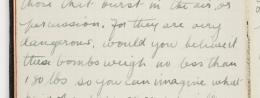 those that burst in the air, or
percussion. For they are very
dangerous, would you believe it
these bombs weigh no less than
130 lbs so you can imagine what